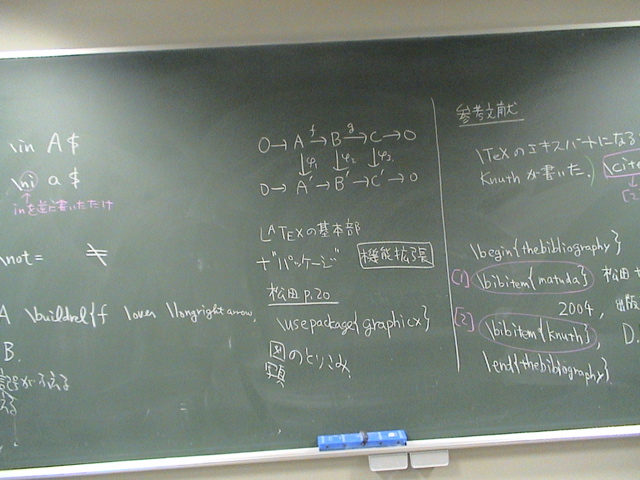 \in A $
\ni a $
inを逆に書いただけ
\not= ≠
A \buildrel{f \over \longrightarrow
B.
0→A f→B g→C→0
↓φ1 ↓φ2 ↓φ3
0→A'→B'→C'→0
LATEXの基本部
+"パッケージ" 機能拡張
松田 p.20
\usepackage{graphicx}
図のとりこみ
題
参考文献
\TeXのエキスパートになる
Knuthが書いた. \cite
\begin{thebibliography}
[1] \bibitem{matuda} 松田
2004, 出版
[2] \bibitem{knuth}, D.
\end{thebibliography}